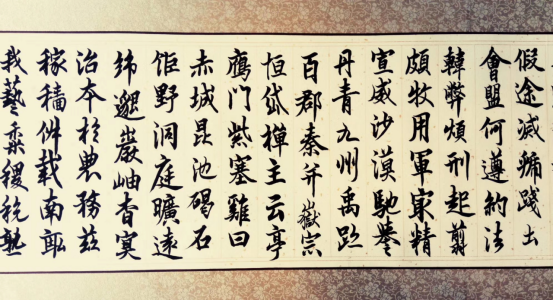 假途滅虢踐土
會盟何遵約法
韓弊煩刑起翦
頗牧用軍冣精
宣威沙漠馳譽
丹青九州禹跡
百郡秦并嶽宗
恒岱禪主云亭
鴈門紫塞雞田
赤城昆池碣石
鉅野洞庭曠遠
綿邈巖岫杳冥
治本於農務茲
稼穡俶載南畝
我藝黍稷稅熟